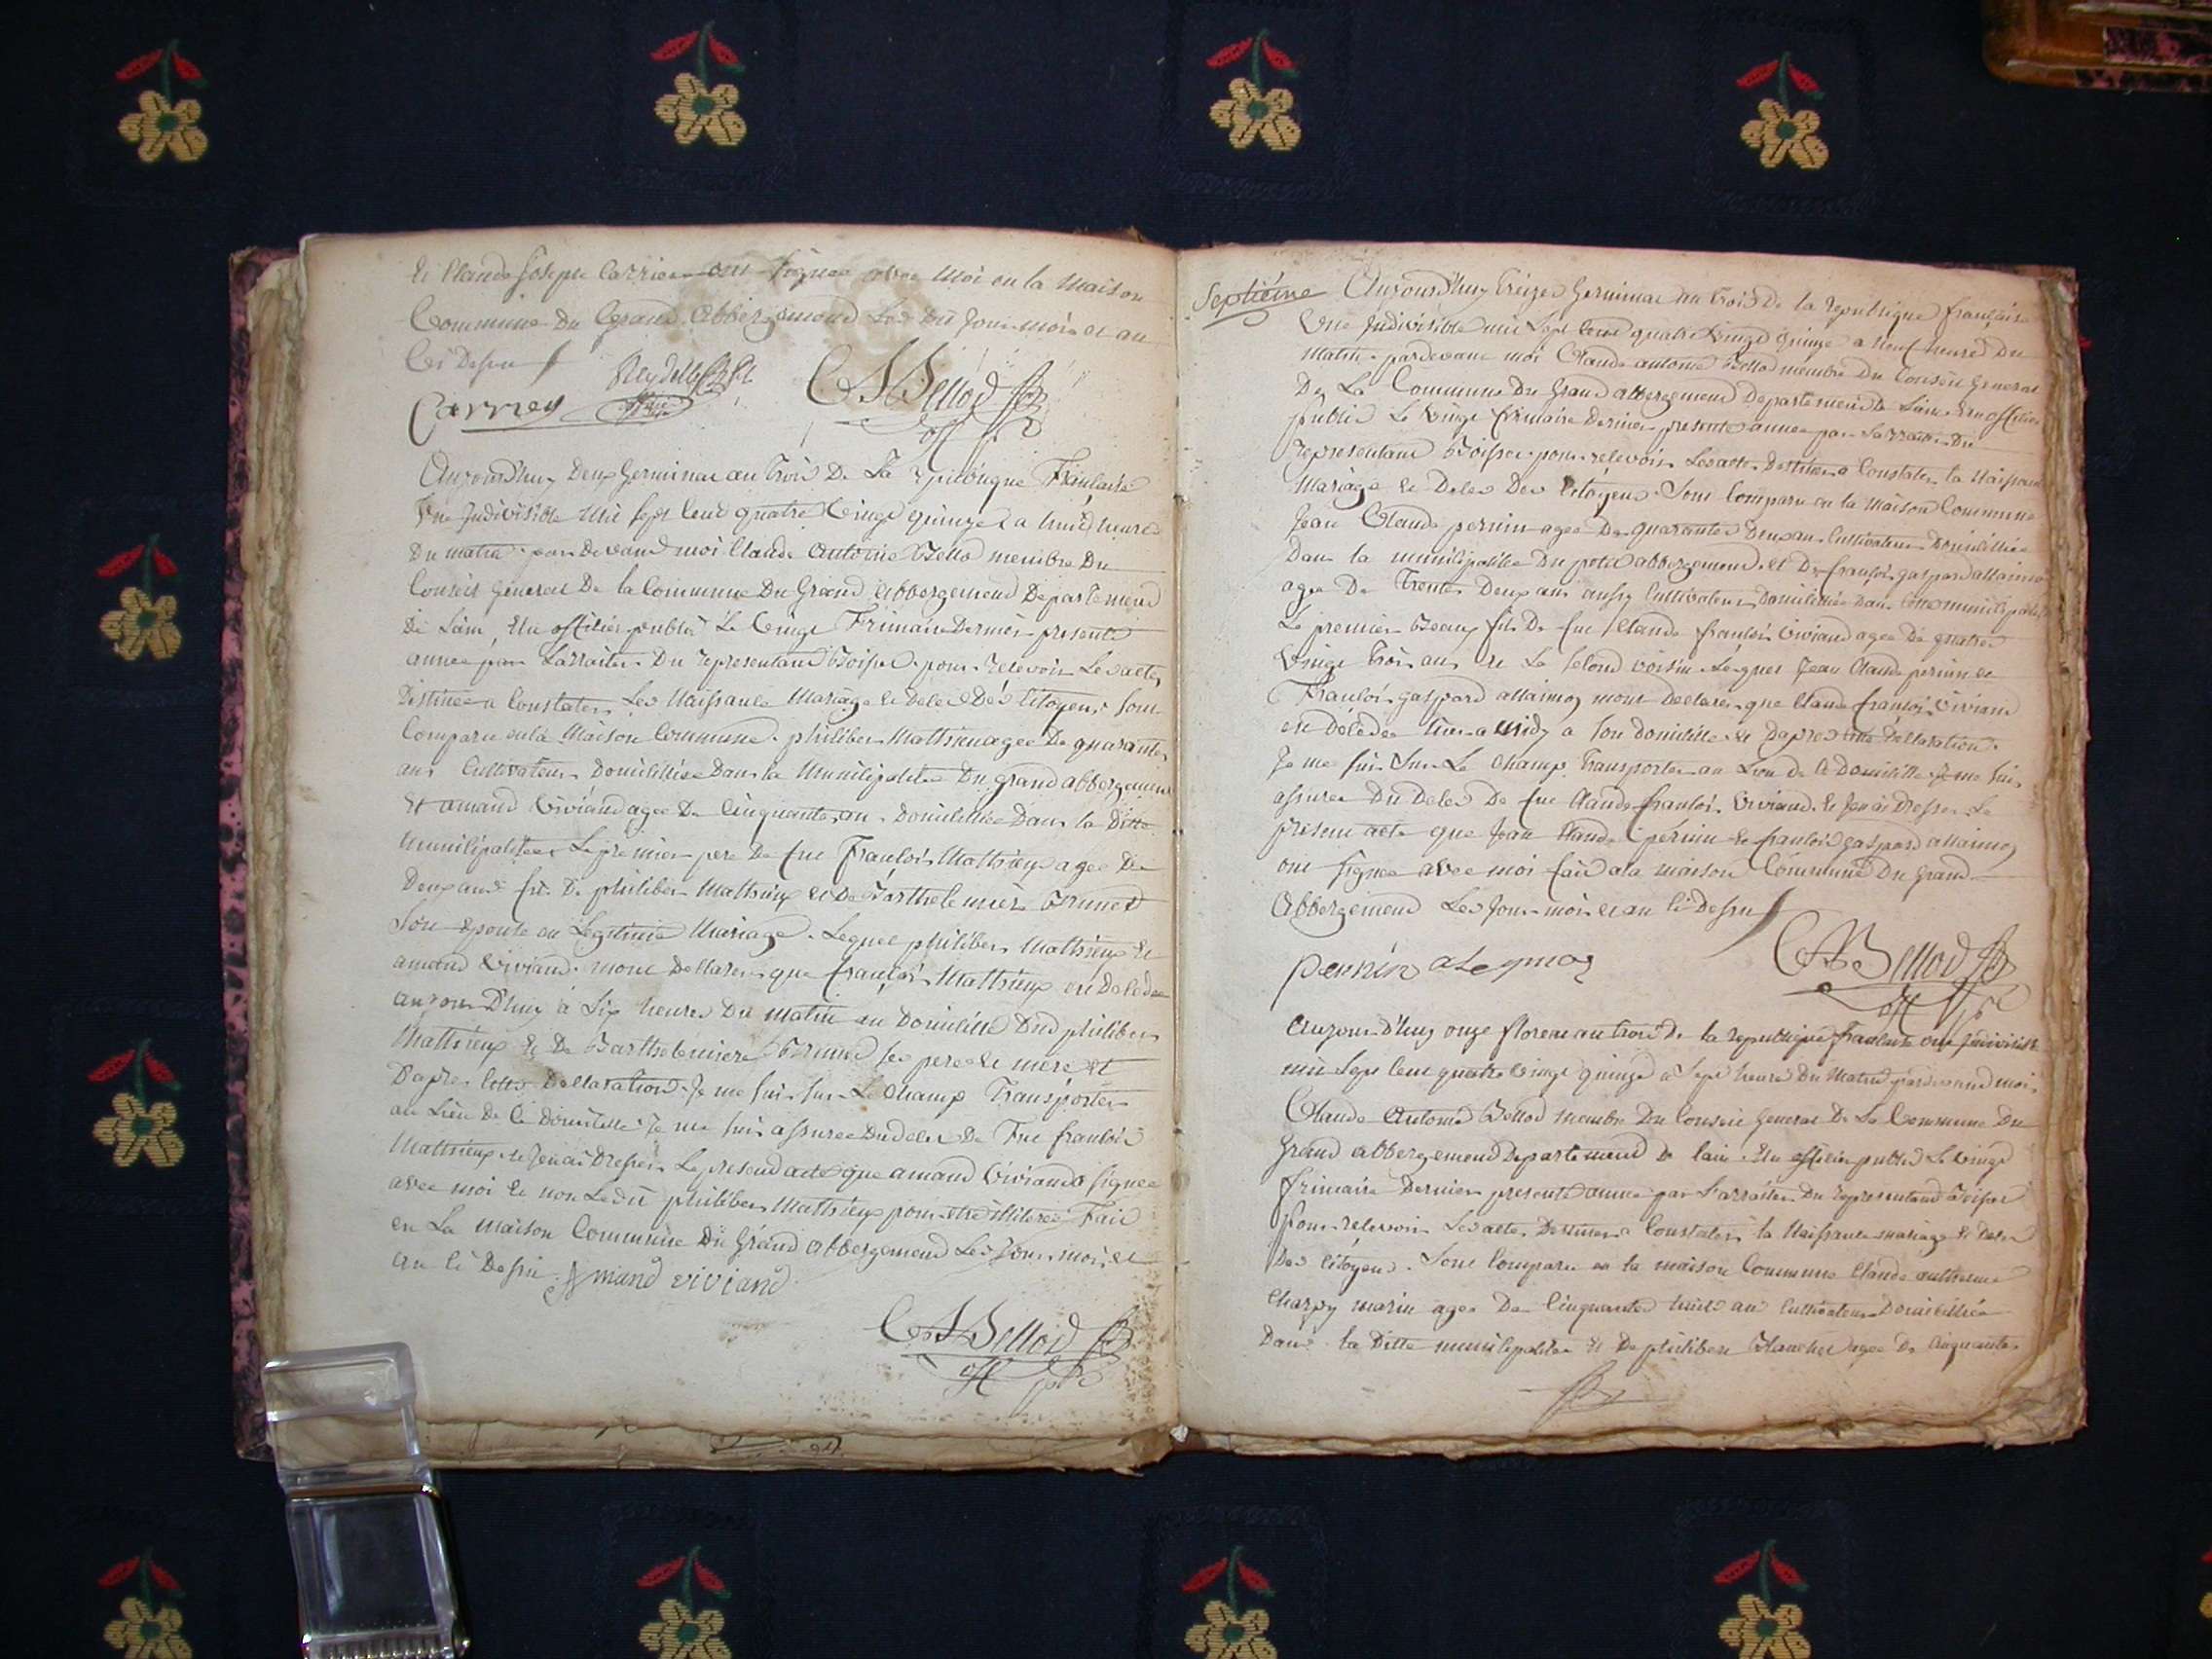 Et Claude Joseph Carrier ont signee avec moi en la maison
Commune du Grand abbergemend Les dit Jour mois et an
Ci Dessu
Carrier Reydellet
CABellod
off p
Aujourdhuy deux Germinal an trois De La republique Francaise
Une Indivisible mil sept cent quatre vingt quinze a huit heures
Du matin par devand moi Claude Antoine Bellod membre Du
Conseil General De la Commune Du Grand abbergemend Departemend
De Lain, Elu officier public Le vingt Frimaire Dernier presente
annee par Larraiter Du representand Boisset pour recevoir Les actes
Destinee a Constater Les Naissance Mariage et Deces Des Citoyens sont
Comparu en la Maison Commune philiber Matthieux agee De quarante
ans Cultivateur Domicilliee Dans la Municipalitee Du grand abbergemend
Et amand Viviand agee De Cinquante ans Domicilliee Dans la Ditte
municipalitee Le premier pere De feu Francois Matthieux agee De
Deux ans fis De philiber Matthieux et De Barthelemiere Brunet
Son Epouse en Legitime Mariage. Lequel philiber Matthieux et
amand Viviand mont Dellarer que francois Matthieux en Decedee
aujourdhuy a six heures Du matin au Domicille Dud philiber
Matthieux et De Barthelemiere Brunet ses pere et mere Et
Dapres Cette Dellaration Je me suis sur Le champ Transporter
au Lieu De Ce Domicille Je me suis assuree Du deces De Feu francois
Matthieux et Jen ai Dresser Le presend acte que amand Viviand signee
avec moi Et non Le dit philiber Matthieux pour etre illiteree Fait
en La maison Commune Du Grand abbergemend Les Jour mois et
an Ci Dessu. Amand viviand
CABellod
off p
Septiéme Aujourdhuy treize Germinal an trois De la republique francaise
Une Indivisible mil sept cent quatre vingt quinze a neuf heures Du
matin pardevant moi Claude antoine Bellod membre Du Conseil General
De La Commune Du Grand abbergemend Departemend De Lain Elu officier
public Le vingt frimaire Dernier presente annee par Larraiter Du
representand Boisset pour recevoir Les actes Destinee a Constater la Naissance
Mariage et Deces Des Citoyens Sont Comparu en la maison Commune
Jean Claude perrin agee De quarante Deux ans Cultivateur Domicilliee
Dans la municipalitee Du petit abbergemend et De francois gaspard allaimoz
agee De trente Deux ans aussy Cultivateur Domicilliee Dans
Le premier Beaux fils De feu Claude francois Viviand agee De quatre
Vingt trois ans et Le second voisin Lesquel Jean Claude perrin et
Francois gaspard allaimoz mont Declarer que Claude francois Viviand
en Decedee hier a midy a son domicille et Dapres cette Dellaration
Je me suis Sur Le champ Transporter au Lieu De ce Domicille Je me suis
assuree Du Deces De feu Claude francois Viviand et Jen ai Dresser Le
presend acte que Jean Claude perrin et francois gaspard allaimoz
ont signee avec moi fait a la maison Commune Du Grand
Abbergemend Les Jour mois et an Ci Dessu
perrin aLeymoz
CABellod
off p
Aujourdhuy onze floreal an trois De la republique francaise une Indivisible
mil Sept Cent quatre vingt quinze a Sept heures Du Matin pardevand moi
Claude Antoine Bellod membre Du Conseil General De La Commune Du
Grand abbergemend Departemend De lain Elu officier public Le vingt
frimaire Dernier presente annee par Larraiter Du representand Boisset
pour recevoir Les acte Destinee a Constater la Naissance mariage et Deces
Des Citoyens. Sont Comparu en la maison Commune Claude anthelme
Charpy marin agee De Cinquante huit ans Cultivateur Domicilliee
Dans la Ditte municipalitee et De philiber Blanchet agee De Cinquante